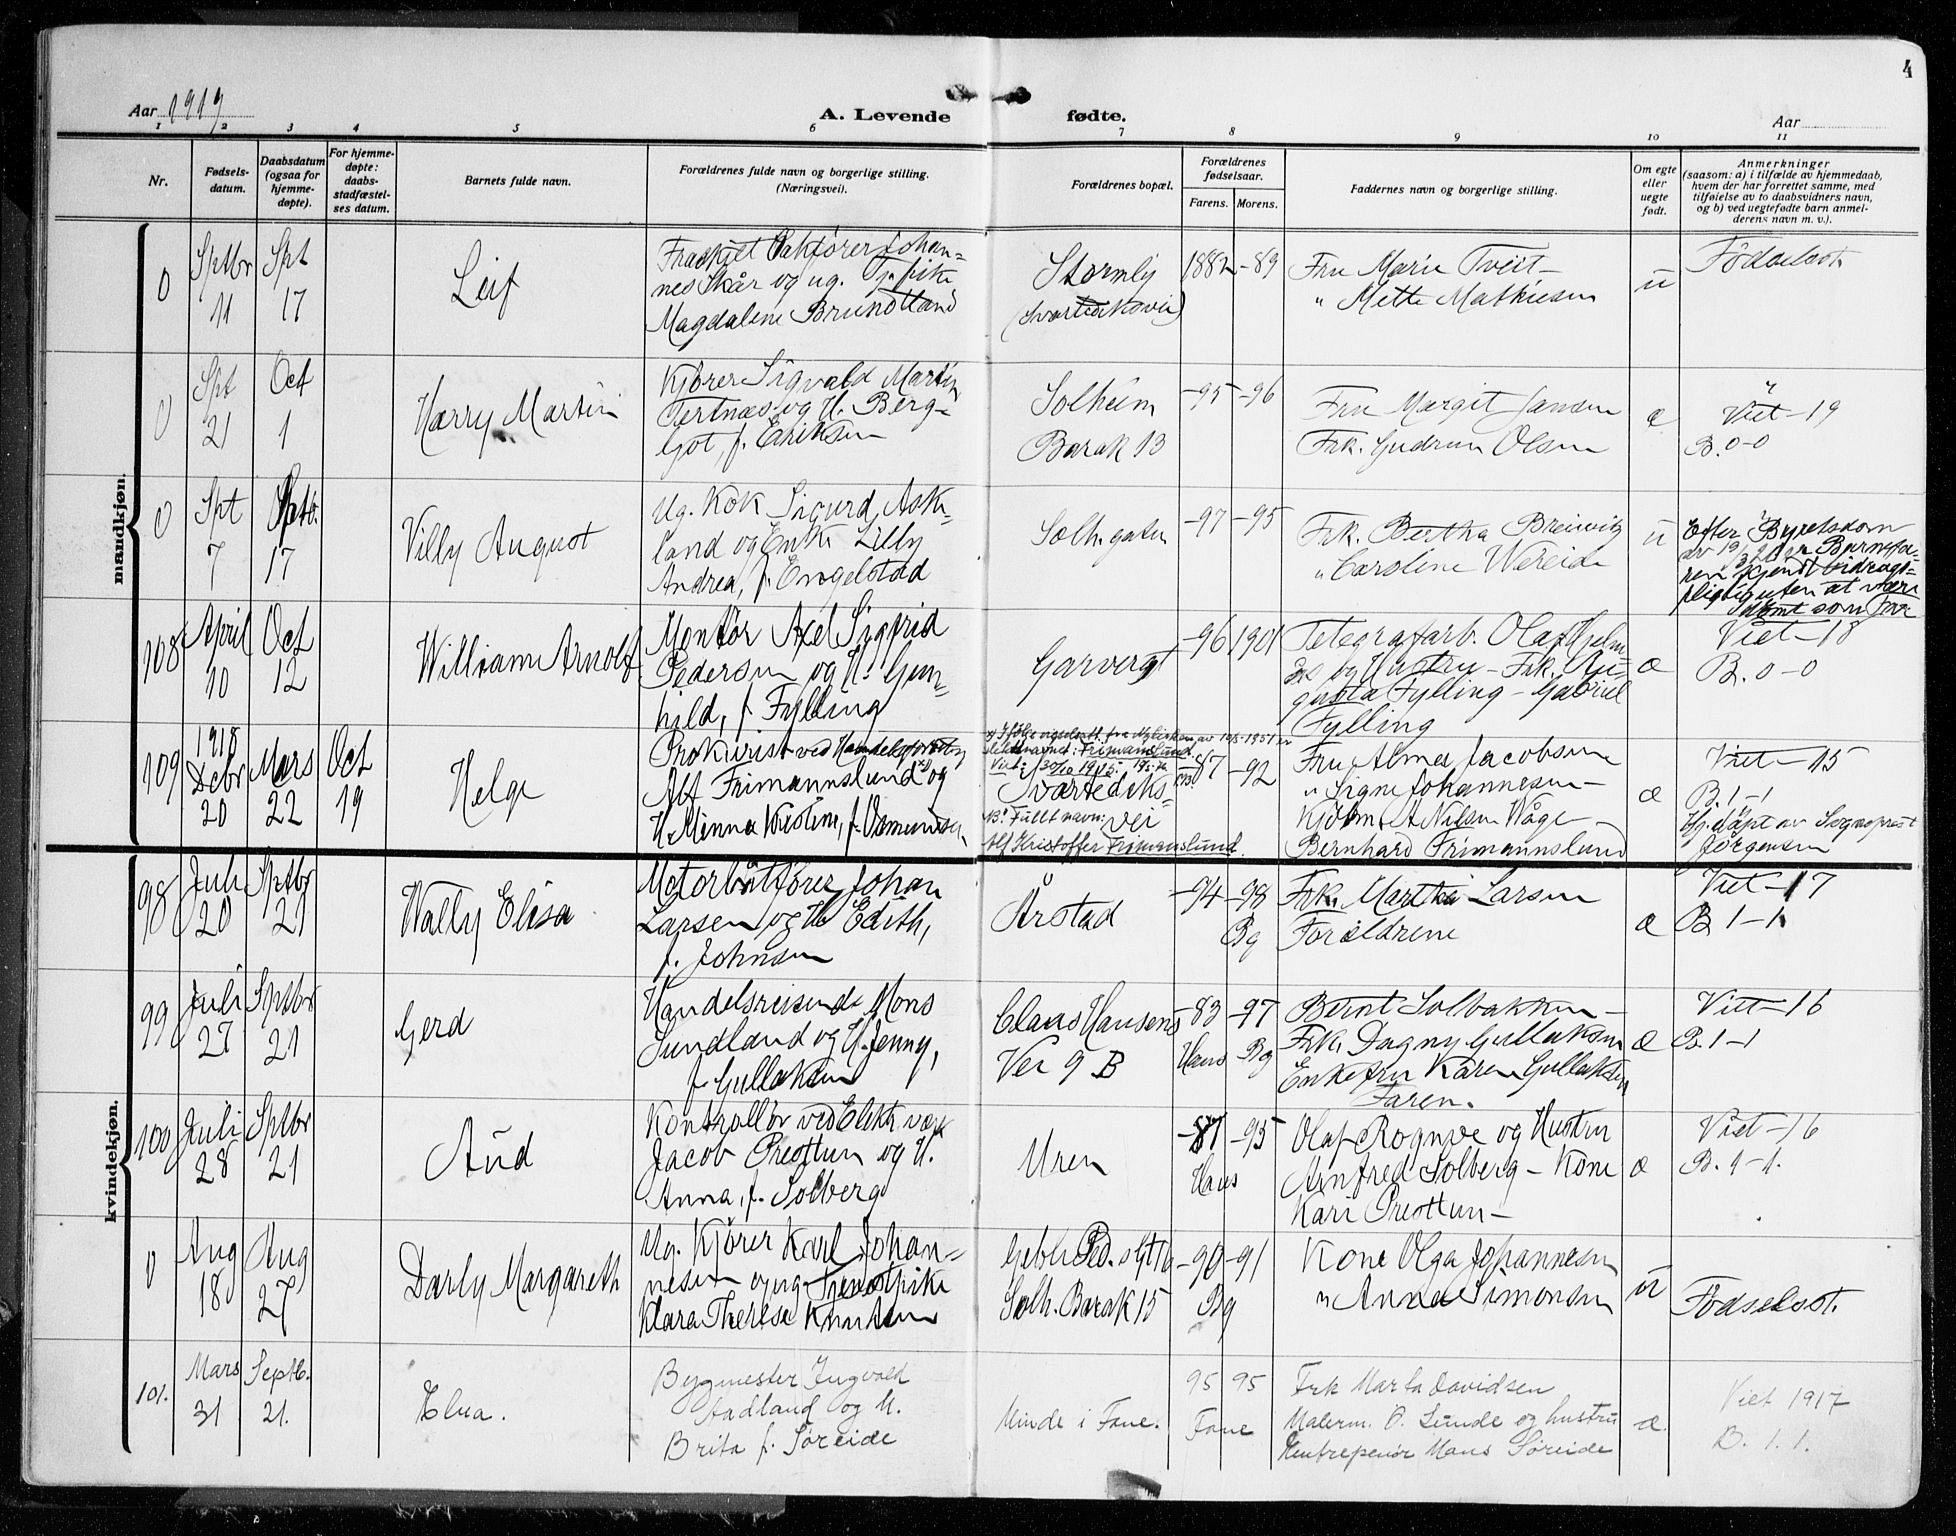 4
Aar 1919
A. Levende fødte.
Aar
1 2 3 4 5 6 7 8 9 10 11
Nr.
Fødsels-
datum.
Daabsdatum
(ogsaa for
hjemme-
døpte).
For hjemme-
døpte:
daabs-
stadfæstel-
ses datum.
Barnets fulde navn.
Forældrenes fulde navn og borgerlige stilling.
(Næringsvei).
Forældrenes bopæl.
Forældrenes
fødselsaar.
Farens. Morens.
Faddernes navn og borgerlige stilling.
Om egte
eller
uegte
født.
Anmerkninger
(saasom: a) i tilfælde av hjemmedaab,
hvem der har forrettet samme, med
tilføielse av to daabsvidners navn,
og b) ved uegtefødte barn anmel-
derens navn m. v.).
mandkjøn.
0
Sptbr
11
Spt
17
Leif
Fraskilt Pakfører Johan-
nes Skår og ug. Tj.pike
Magdalene Brundtland
Stormly
1882 -89
Fru Marie Tveit -
" Mette Mathiesen
u
Fødselsat.
0
Spt
21
Oct
1
Harry Martin
Kjører Sigvald Martin
Tertnæs og H. Berg-
liot, f. Eriksen
Solheim
Barak 13
-95 -96
Fru Margit Jansen
Frk. Gudrun Olsen
æ
Viet -19
B. 0-0
0
Spt
7
Sptb.
17
Villy August
Ug. Kok Sigurd Ask-
land og Enke Lilly
Andrea, f. Engelstad
Solh.gaten
-97 -95
Frk. Bertha Breivig
" Caroline Wereide
u
Efter Byretsdom
bidrags-
pligtig uten at være
dømt som far
108
April
10
Oct
12
William Arnolf
Montør Axel Sigfrid
Pedersen og H. Gun-
hild, f. Fylling
Garvergt
-96 1901
Telegrafarb. Olaf Hjelm-
ås og Hustru - Frk. Au-
gusta Fylling - Gabriel
Fylling
æ
Viet -18
B. 0-0
109
1918
Debr
20
Mars
22
Oct
19
Helge
Prokurist ved Handelsforetn
Alf Frimannslund x) og
H. Minna Kristine, f. Osmundsen
slektsnavnet: Frimanslund.
Svartediks-
vei
Fullt navn:
Alf Kristoffer Frimanslund.
-87 -92
Fru Alma Jacobsen
" Signe Johannesen -
Kjøbm. A Nilsen Wåge -
Bernhard Frimannslund
æ
Viet -15
B. 1-1
Hj. døpt av Sogneprest
Jørgensen
kvindekjøn.
98
Juli
20
Sptbr
21
Wally Elisa
Motorbåtfører Johan
Larsen og H. Edith,
f. Johnsen
Årstad
-94 -98
Bg
Frk. Martha Larsen
Forældrene
æ
Viet -17
B 1-1
99
Juli
27
Sptbr
21
Gerd
Handelsreisende Mons
Sundland og H. Jenny,
f. Gullaksen
Claus Hansens
Vei 9 B
-83 -97
Haus Bg
Bernt Solbakken -
Frk. Dagny Gullaksen
Enkefru Karen Gullaksen
Faren.
æ
Viet -16
B. 1-1
100
Juli
28
Sptbr
21
Aud
Kontrollør ved Elektr. værk
Jacob Prestun og H.
Anna, f. Solberg
Uren
-87 -95
Haus
Olaf Rognve og Hustru
Arnfred Solberg - Kone
Kari Prestun -
æ
Viet -16
B. 1-1.
0
Aug
18
Aug
27
Darly Margareth
Ug. Kjører Karl Johan-
nesen og ug. Tjenestpike
Klara Therese Knutsen
Solh. Barak 15
-90 -91
Bg
Kone Olga Johannesen
" Anna Simonsen
u
Fødselsat.
101.
Mars
31
Septb.
21.
Elna.
Bygmester Ingvald
Aadland og H.
Brita f. Søreide
Minde i Fane.
95 95
Fane
Frk Marta Davidsen
Malerm. O. Lunde og hustru
Entreprenør Mons Søreide
æ.
Viet 1917
B. 1.1.